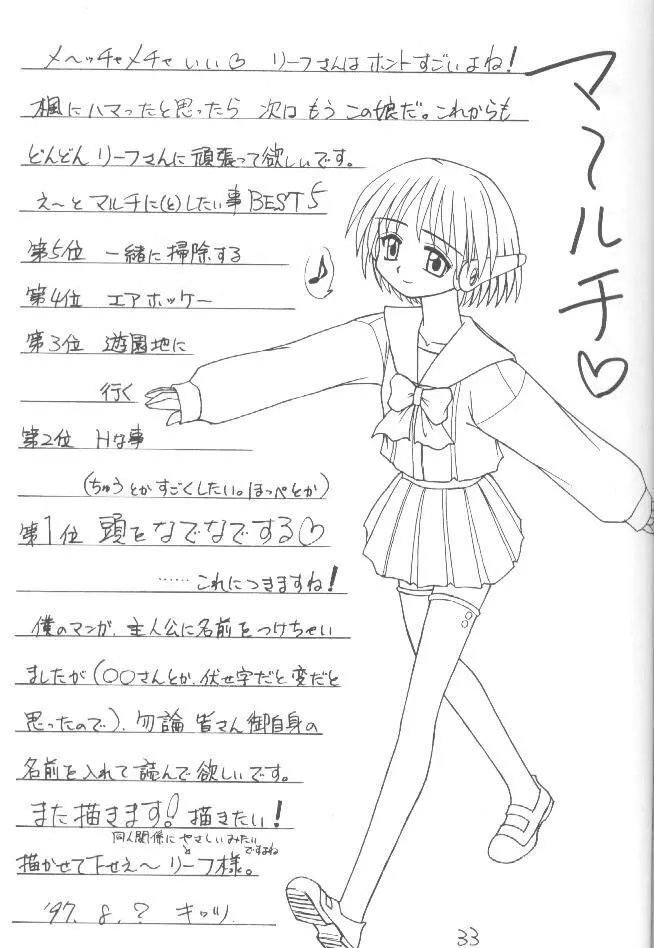 マールチ♡
メ〜ッチャメチャ いい♡ リーフさんは ホントすごいよね!
楓にハマったと思ったら 次は もう この娘だ。これからも
どんどん リーフさんに 頑張って欲しいです。
え〜と マルチに(と)したい事 BEST5
第5位 一緒に掃除する
第4位 エアホッケー
第3位 遊園地に
行く
第2位 Hな事
(ちゅうとかすごくしたい。ほっぺとか)
第1位 頭をなでなでする♡
……これにつきますね!
僕のマンガ、主人公に名前をつけちゃい
ましたが(○○さんとか、伏せ字だと変だと
思ったので)、勿論 皆さん御自身の
名前を入れて読んで欲しいです。
また描きます! 描きたい!
同人関係に やさしいみたい
ですよね
描かせて下せえ〜 リーフ様。
'97. 8. ? キッツ
♪
33